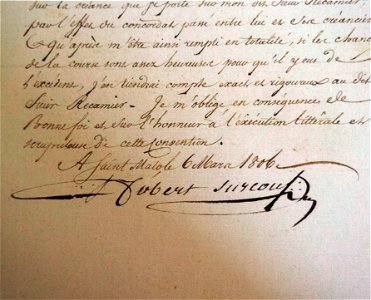 sur la créance que je porte sur mon dit Sieur Récamier,
par l'effet du concordat passé entre lui et ses créanciers
& qu'après m'être ainsi rempli en totalité, si les chances
de la course sont assez heureuses pour qu'il y eut de
l'excédent, j'en tiendrai compte exact et rigoureux au dit
Sieur Recamier. Je m'oblige en conséquence de
bonne foi et sur l'honneur à l'exécution littérale et
scrupuleuse de cette convention.
A Saint Malo le 6 Mars 1806
Robert Surcouf